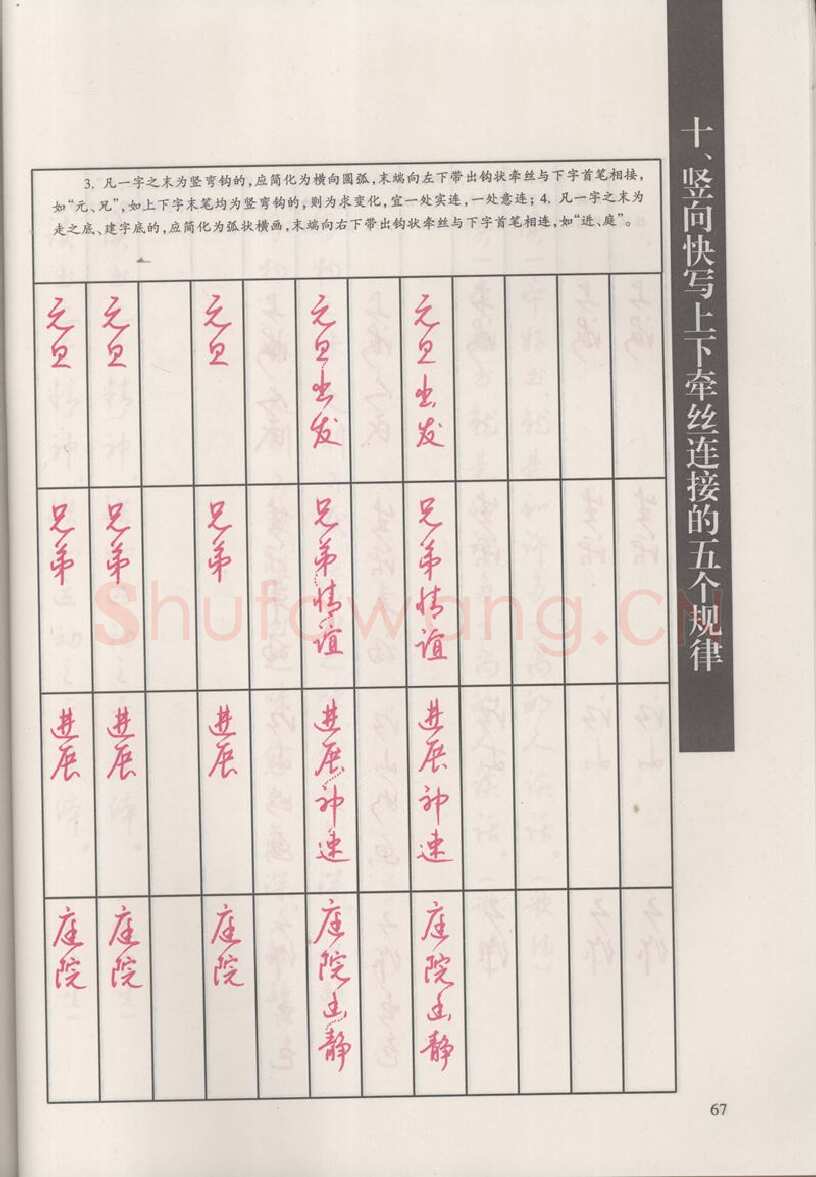 十、竖向快写上下牵丝连接的五个规律
3. 凡一字之末为竖弯钩的,应简化为横向圆弧,末端向左下带出钩状牵丝与下字首笔相接,
如“元、兄”,如上下字末笔均为竖弯钩的,则为求变化,宜一处实连,一处意连;4. 凡一字之末为
走之底、建字底的,应简化为弧状横画,末端向右下带出钩状牵丝与下字首笔相连,如“进、庭”。
元旦 元旦 元旦 元旦出发 元旦出发
兄弟 兄弟 兄弟 兄弟情谊 兄弟情谊
进展 进展 进展 进展神速 进展神速
庭院 庭院 庭院 庭院幽静 庭院幽静
Shufawang.CN
67